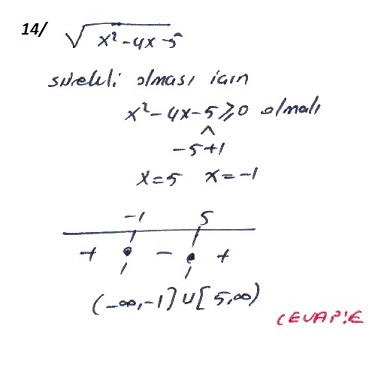 14/ √x²-4x-5
sürekli olması için
x²-4x-5≥0 olmalı
-5+1
x=5 x=-1
-1 5
+ - +
(-∞,-1]∪[5,∞)
CEVAP:E